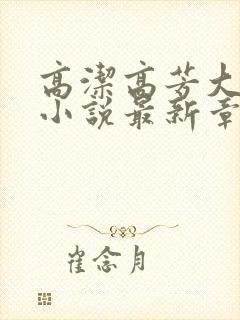 高潔高芳大
小說最新章
崔念月